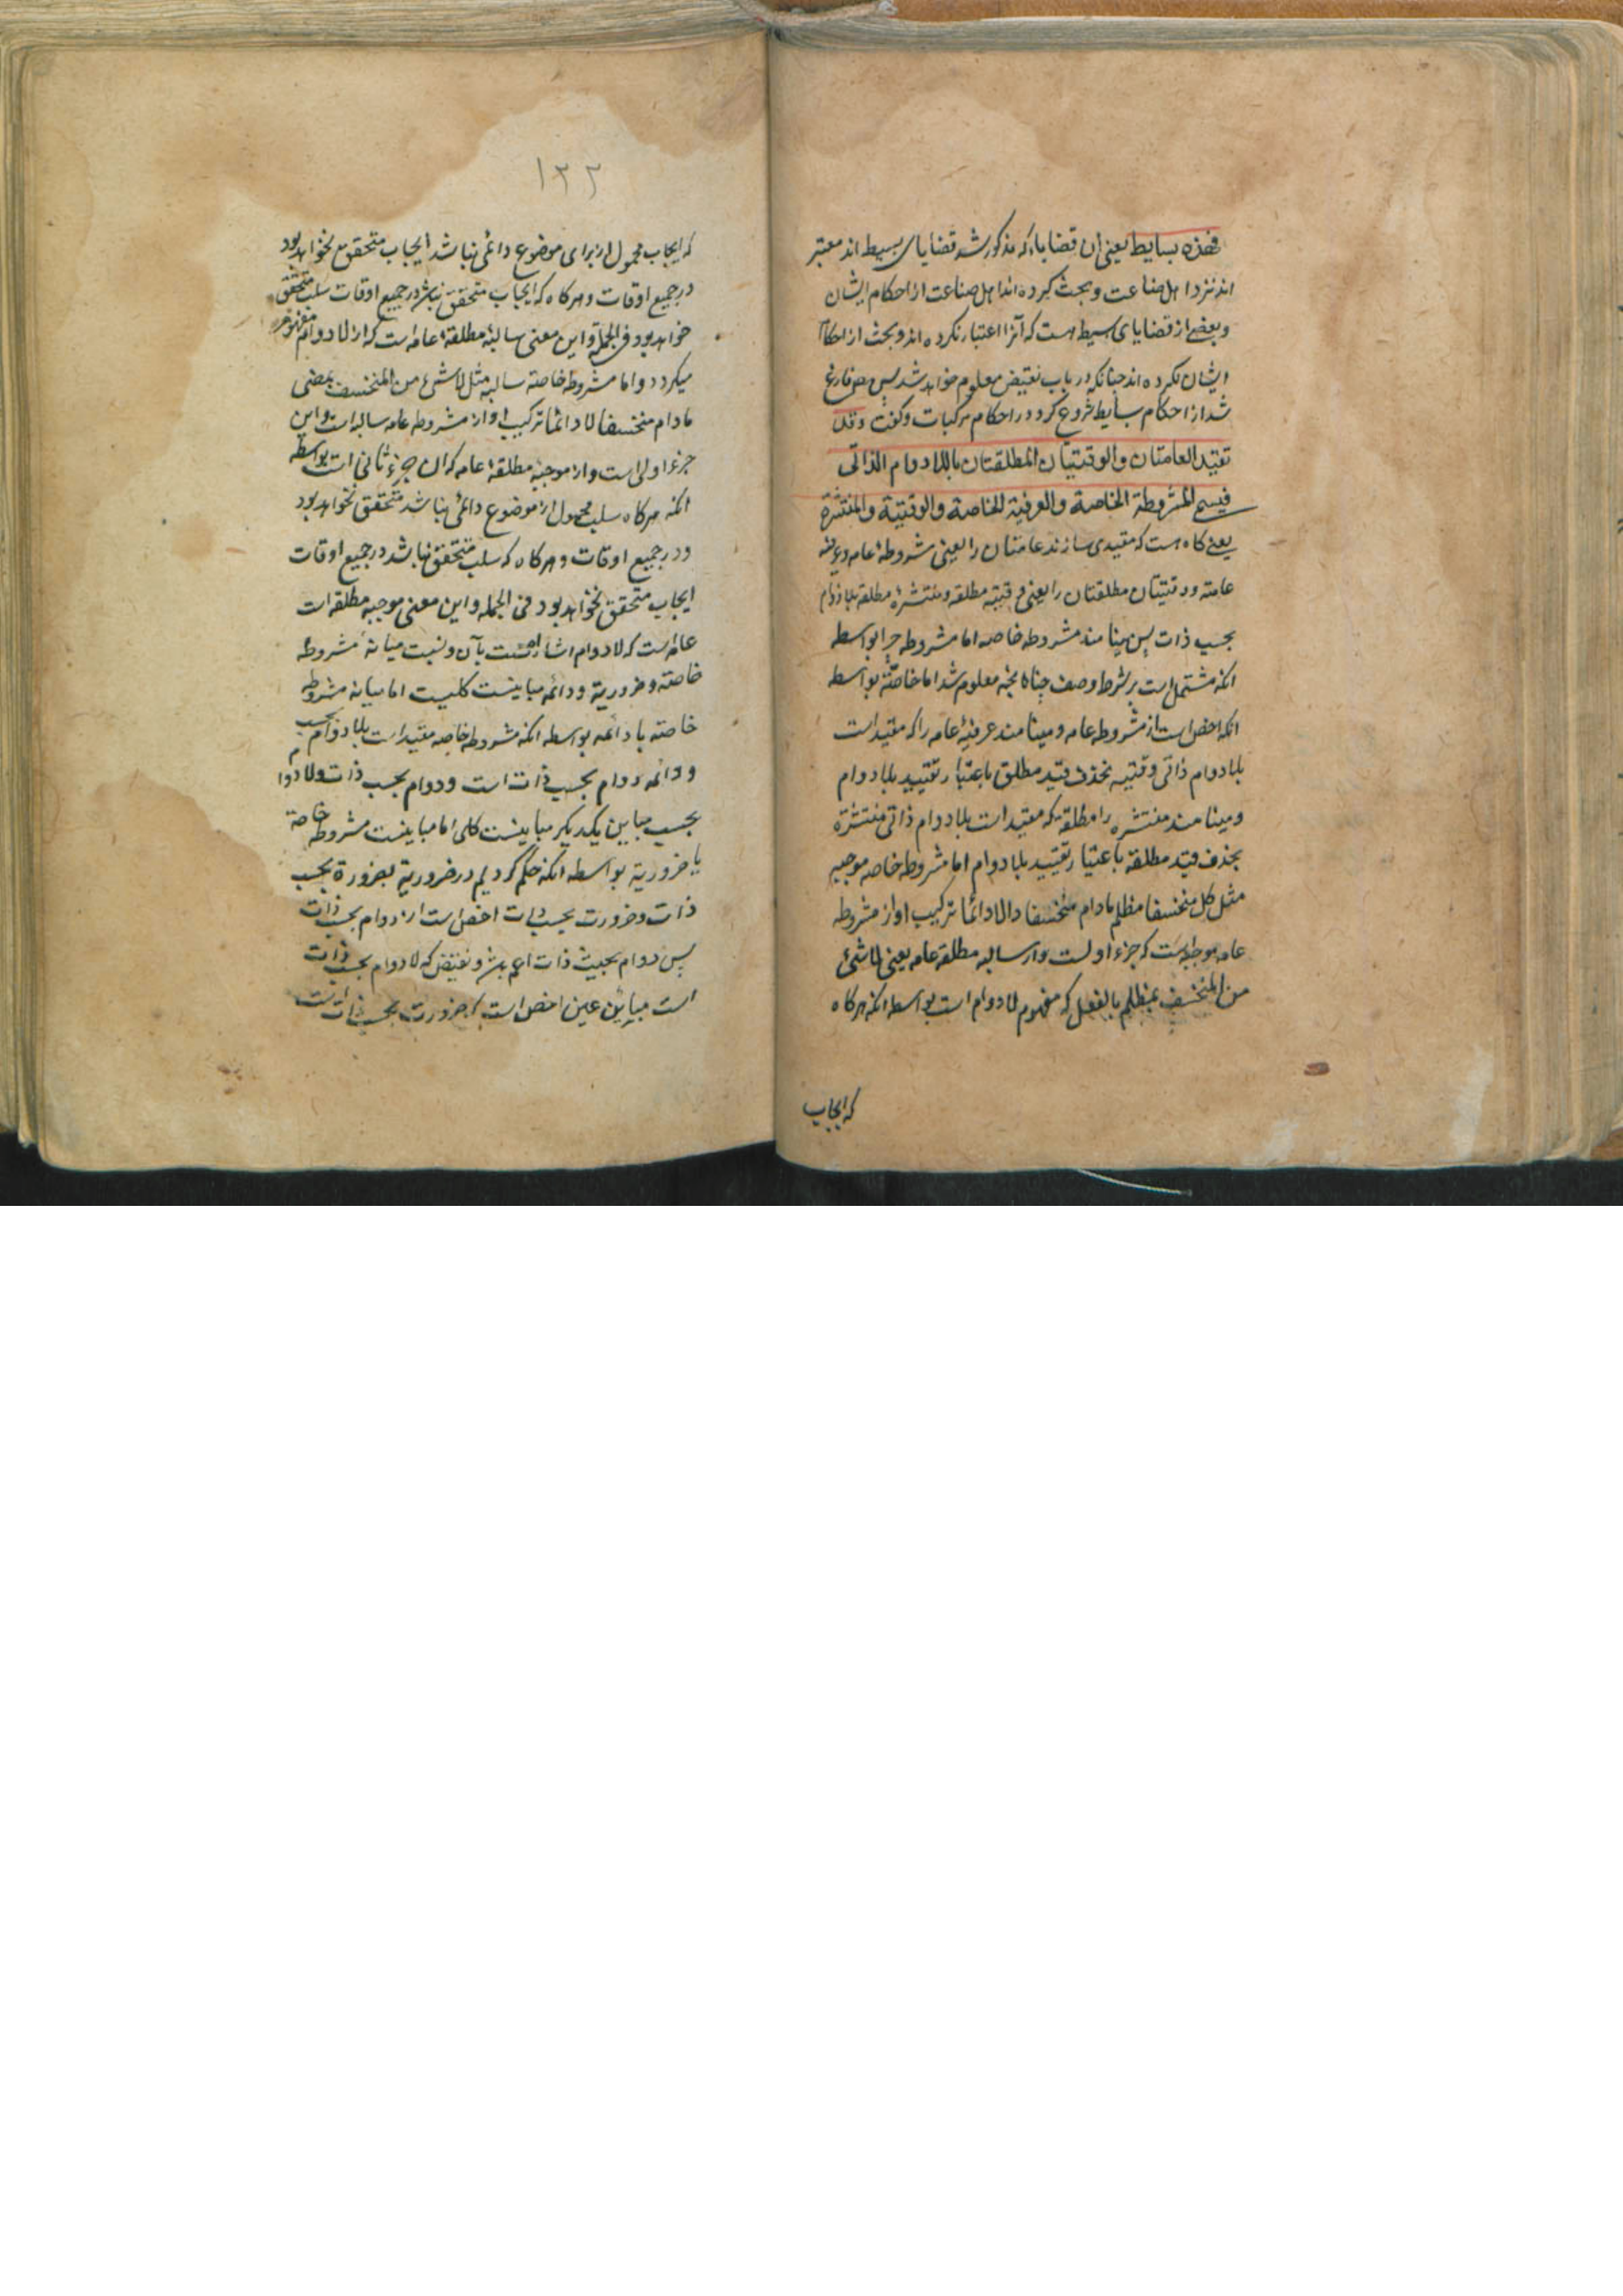 فهذه بسایط یعنی ان قضایا که مذکور شد قضایای بسیط اند معتبر
اند نزد اهل صناعت و بحث کرده اند اهل صناعت از احکام ایشان
و بعضی از قضایای بسیط هست که آنرا اعتبار نکرده اند و بحث از احکام
ایشان نکرده اند چنانکه در باب نقیض معلوم خواهد شد پس مص فارغ
شد از احکام بسایط شروع کرد در احکام مرکبات و کفت وقد
تقید العامتان والوقتیتان المطلقتان باللادوام الذاتی
فیسمی المشروطة الخاصة والعرفیة الخاصة والوقتیة والمنتشرة
یعنی کاه هست که مقید می سازند عامتان را یعنی مشروطهٔ عامه و عرفیه
عامه و وقتیتان مطلقتان را یعنی وقتیه مطلقه و منتشرهٔ مطلقه بلادوام
بحسب ذات پس مینامند مشروطه خاصه اما مشروطه چرا بواسطه
انکه مشتمل است بر شرط وصف چنانچه معلوم شد اما خاصّة بواسطه
انکه اخص است از مشروطه عامه و مینامند عرفیهٔ عامه را که مقید است
بلادوام ذاتی وقتیه بحذف قید مطلق باعتبار تقیید بلادوام
و مینامند منتشره را مطلقه که مقید است بلادوام ذاتی منتشرة
بحذف قید مطلقة باعتبار تقیید بلادوام اما مشروطه خاصه موجبه
مثل کل منخسف مظلم مادام منخسفا لادائما ترکیب او از مشروطه
عامه موجبه است که جزء اولست و از سالبه مطلقه عامه یعنی لاشئ
من المنخسف بمظلم بالفعل که مفهوم لادوام است بواسطه انکه هرکاه
که ایجاب
۱۲۲
که ایجاب محمول از برای موضوع دائمی نباشد ایجاب متحقق نخواهد بود
در جمیع اوقات و هرکاه که ایجاب متحقق نباشد در جمیع اوقات سلب متحقق
خواهد بود فی الجمله و این معنی سالبهٔ مطلقهٔ عامه است که از لادوام مفهوم
میکردد و اما مشروطه خاصة سالبه مثل لاشئ من المنخسف بمضئ
مادام منخسفا لادائما ترکیب او از مشروطه عامه سالبه است و این
جزء اولی است و از موجبهٔ مطلقهٔ عامه که ان جزء ثانی است بواسطه
انکه هرکاه سلب محمول از موضوع دائمی نباشد متحقق نخواهد بود
در جمیع اوقات و هرکاه که سلب متحقق نباشد در جمیع اوقات
ایجاب متحقق نخواهد بود فی الجمله و این معنی موجبه مطلقه است
عامه است که لادوام اشارتست بآن و نسبت میانهٔ مشروطه
خاصة و ضروریة و دائمه مباینت کلیست اما میانه مشروطه
خاصة با دائمه بواسطه انکه مشروطه خاصه مقید است بلادوام بحسب
و دائمه دوام بحسب ذات است و دوام بحسب ذات و لادوام
بحسب مباین یکدیکر مباینت کلی اما مباینت مشروطه خاصة
با ضروریة بواسطه انکه حکم کردیم در ضروریة بضرورة بحسب
ذات و ضرورت بحسب ذات اخص است از دوام بحسب ذات
پس دوام بحیث ذات اعم باشد و نقیض که لادوام بحسب ذات
است مباین عین اخص است که ضرورت بحسب ذاتست